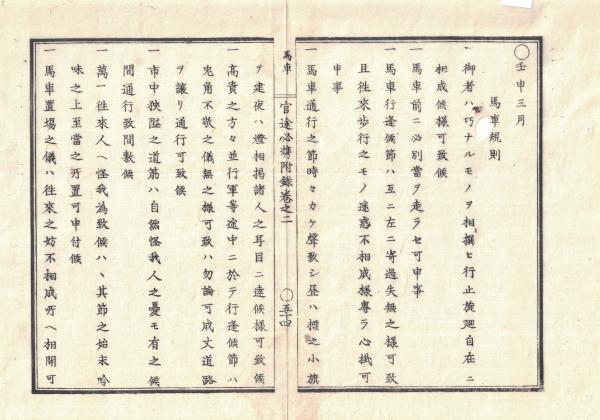 ○壬申三月
馬車規則
一御者ハ巧ナルモノヲ相撰ヒ行止旋廻自在ニ
相成候様可致候
一馬車前ニ必別當ヲ走ラセ可申事
一馬車行逢候節ハ互ニ左ニ寄過失無之様可致
且往來歩行之モノ迷惑不相成様專ラ心掛可
申事
一馬車通行之節時々カケ聲致シ昼ハ標之小旗
馬車
官途必携附錄卷之二
○五十四
ヲ建夜ハ燈相掲諸人之耳目ニ達候様可致候
一高貴之方々並行軍等途中ニ於テ行逢候節ハ
兎角不敬之儀無之様可致ハ勿論可成丈道路
ヲ讓リ通行可致候
一市中狹隘之道筋ハ自然怪我人之憂モ有之候
間通行致間敷候
一萬一往來人ヘ怪我為致候ハヽ其節之始末吟
味之上至當之所置可申付候
一馬車置場之儀ハ往來之妨不相成所ヘ相開可